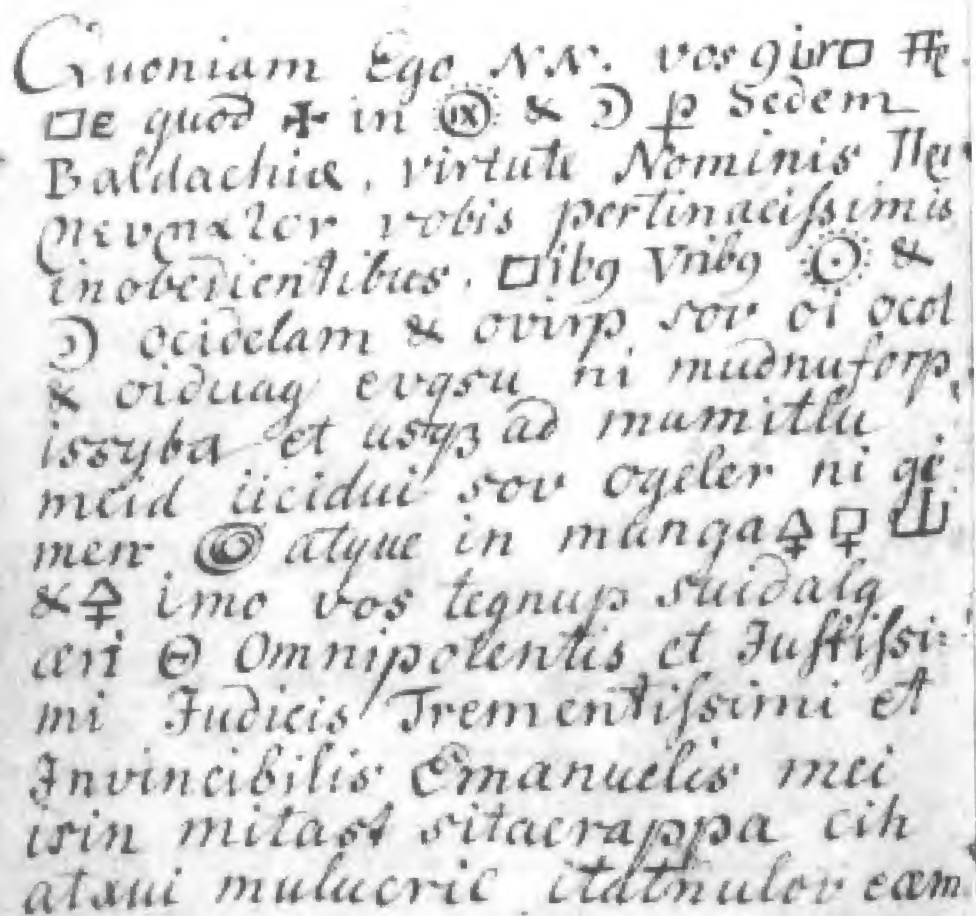 Quoniam Ego N.N. vos
quod ✠ in & ☽ p Sedem
Baldachiæ, virtute Nominis
vobis pertinacissimis
inobedientibus. □ibꝯ Vribꝯ ☉ &
☽ ocidelam & ovirp sov oi ocol
& oiduag evqsu ni mudnuforp,
issyba et usqꝫ ad mumitlu
meid iicidui sov ogeler ni
atque in
& imo vos tegnup suidalg
æri Θ Omnipotentis et Justissi:
mi Judicis Trementissimi et
Invincibilis Emanuelis mei
isin mitast sitaerappa cih
atxui mulueric eæm